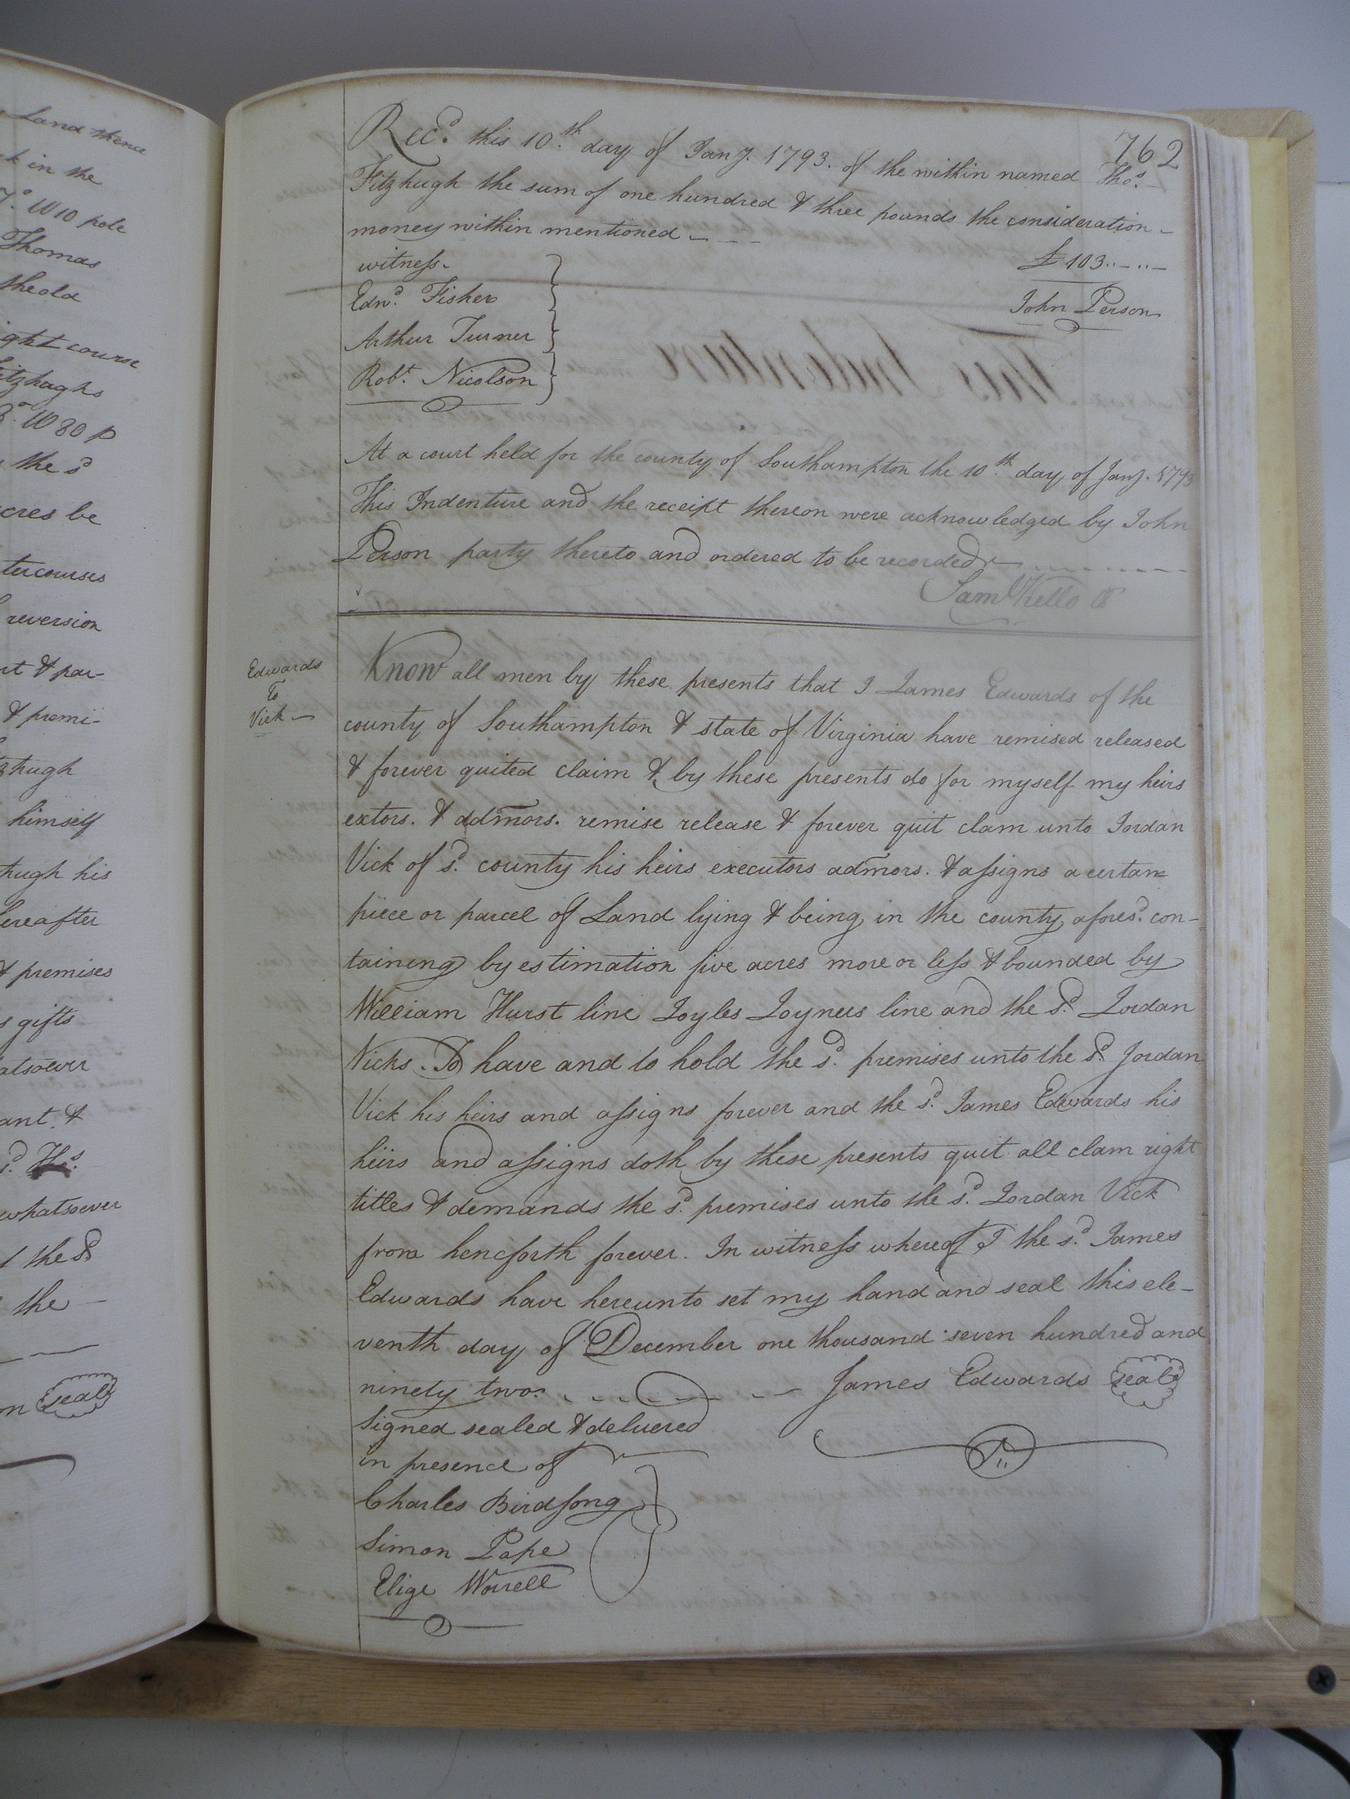 Land thence
k in the
W 10 pole
Thomas
the old
ght course
itzhughs
W 80 p
the sd
cres be
tercourses
reversion
rt & par-
& premi-
zhugh
himself
hugh his
hereafter
& premises
s gifts
atsoever
ant. &
whatsoever
the sd
the
seal
762
Recd. this 10th. day of Jany. 1793. of the within named Thos.
Fitzhugh the sum of one hundred & three pounds the consideration
money within mentioned
witness.
£ 103..-..-
Edwd. Fisher
John Person
Arthur Turner
Robt. Nicolson
At a court held for the county of Southampton the 10th day of Jany. 1793
This Indenture and the receipt thereon were acknowledged by John
Person party thereto and ordered to be recorded
Saml Kello
Edwards
To
Vick
Know all men by these presents that I James Edwards of the
county of Southampton & state of Virginia have remised released
& forever quited claim & by these presents do for myself my heirs
extors. & admors. remise release & forever quit clam unto Jordan
Vick of sd. county his heirs executors admors. & assigns a certan
piece or parcel of Land lying & being in the county aforesd. con-
taining by estimation five acres more or less & bounded by
William Hurst line Joyles Joyners line and the sd. Jordan
Vicks. To have and to hold the sd. premises unto the sd. Jordan
Vick his heirs and assigns forever and the sd. James Edwards his
heirs and assigns doth by these presents quit all clam right
titles & demands the sd. premises unto the sd. Jordan Vick
from hencforth forever. In witness whereof I the sd. James
Edwards have hereunto set my hand and seal this ele-
venth day of December one thousand seven hundred and
ninety two.
James Edwards seal
signed sealed & delivered
in presence of
Charles Birdsong
Simon Pope
Elige Worrell